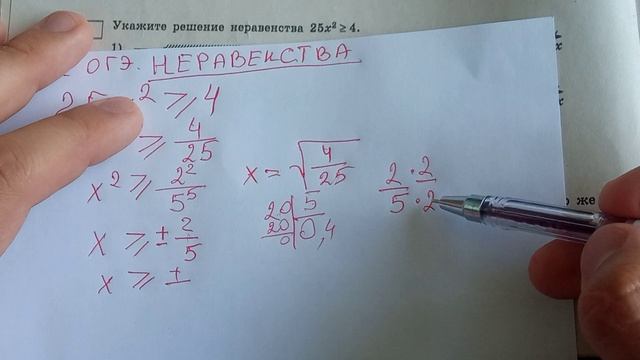 Укажите решение неравенства 25x² ≥ 4.
1)
ОГЭ. НЕРАВЕКСТВА
2 ≥ 4
≥ 4/25
x² ≥ 2²/5⁵
x ≥ ± 2/5
x ≥ ±
x = √4/25
20 | 5
20 | 0,4
0
2·2
5·2
же